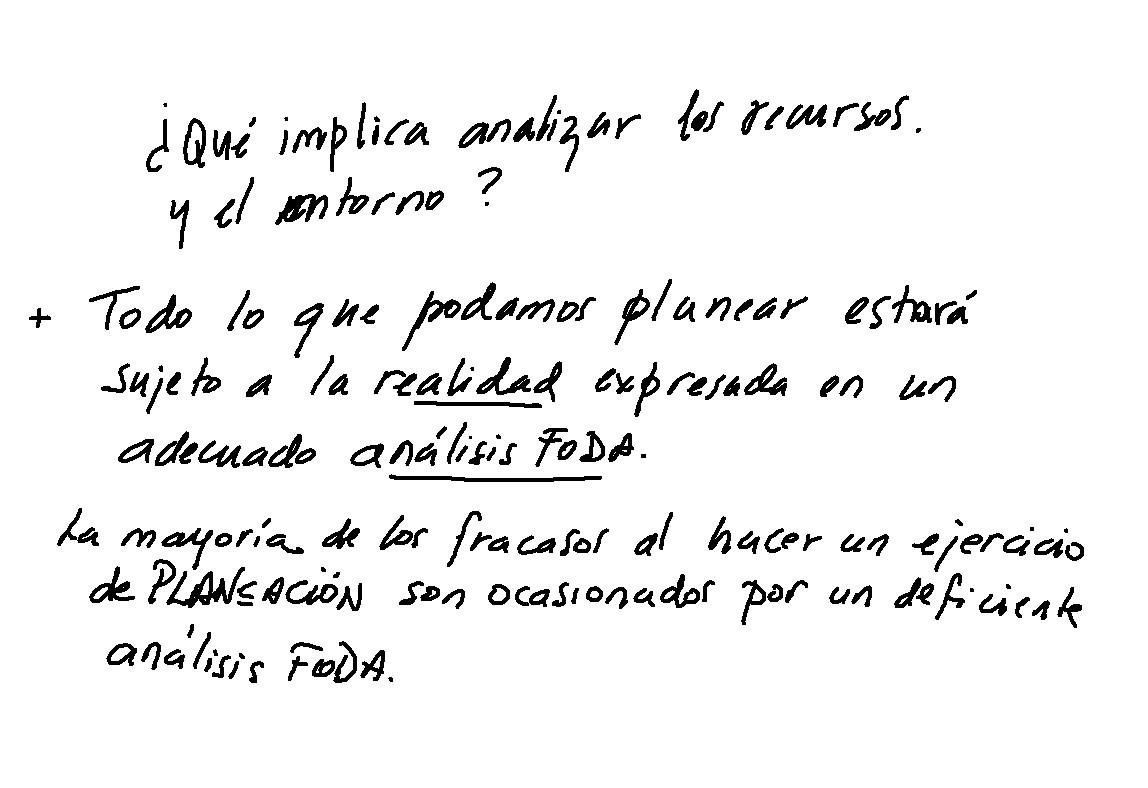 ¿Qué implica analizar los recursos.
y el entorno?
+ Todo lo que podamos planear estará
sujeto a la realidad expresada en un
adecuado análisis FODA.
La mayoría de los fracasos al hacer un ejercicio
de PLANEACIÓN son ocasionados por un deficiente
análisis FODA.